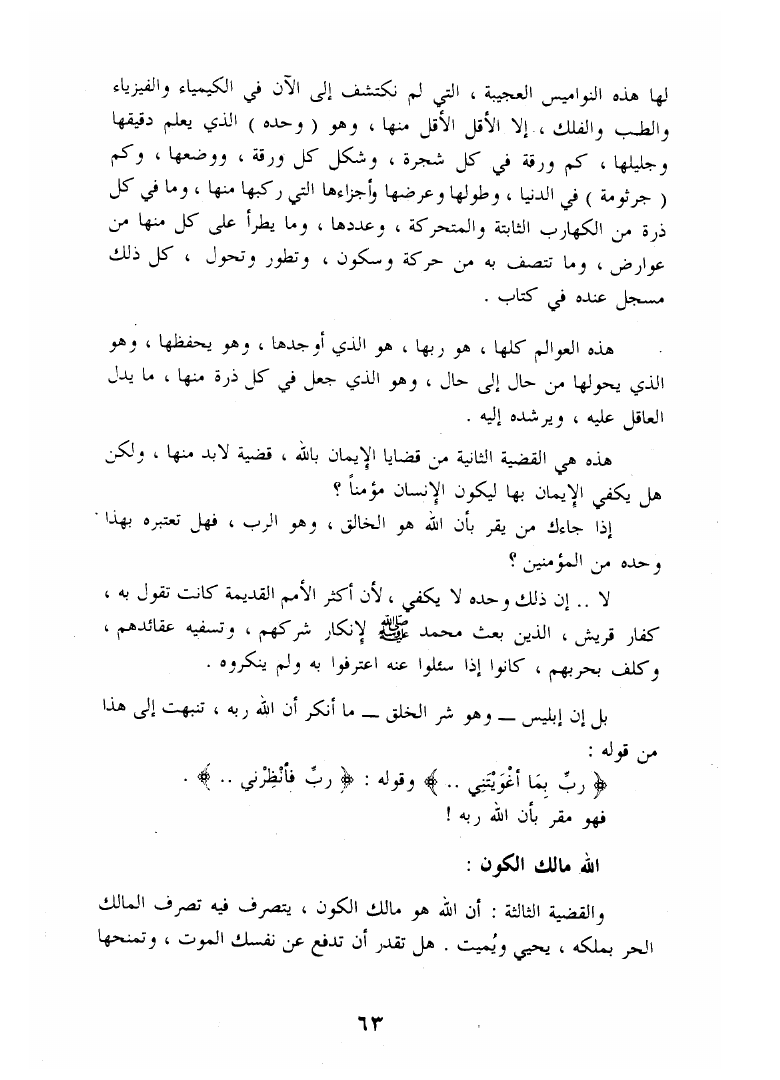 لها هذه النواميس العجيبة ، التي لم نكتشف إلى الآن في الكيمياء والفيزياء
والطب والفلك ، إلا الأقل الأقل منها ، وهو ( وحده ) الذي يعلم دقيقها
وجليلها ، كم ورقة في كل شجرة ، وشكل كل ورقة ، ووضعها ، وكم
( جرثومة ) في الدنيا ، وطولها وعرضها وأجزاءها التي ركبها منها ، وما في كل
ذرة من الكهارب الثابتة والمتحركة ، وعددها ، وما يطرأ على كل منها من
عوارض ، وما تتصف به من حركة وسكون ، وتطور وتحول ، كل ذلك
مسجل عنده في كتاب .
هذه العوالم كلها ، هو ربها ، هو الذي أوجدها ، وهو يحفظها ، وهو
الذي يحولها من حال إلى حال ، وهو الذي جعل في كل ذرة منها ، ما يدل
العاقل عليه ، ويرشده إليه .
هذه هي القضية الثانية من قضايا الإيمان بالله ، قضية لابد منها ، ولكن
هل يكفي الإيمان بها ليكون الإنسان مؤمناً ؟
إذا جاءك من يقر بأن الله هو الخالق ، وهو الرب ، فهل تعتبره بهذا
وحده من المؤمنين ؟
لا .. إن ذلك وحده لا يكفي ، لأن أكثر الأمم القديمة كانت تقول به ،
كفار قريش ، الذين بعث محمد ﷺ لإنكار شركهم ، وتسفيه عقائدهم ،
وكلف بحربهم ، كانوا إذا سئلوا عنه اعترفوا به ولم ينكروه .
بل إن إبليس ــ وهو شر الخلق ــ ما أنكر أن الله ربه ، تنبهت إلى هذا
من قوله :
﴿ ربِّ بِمَا أغْوَيْتَنِي .. ﴾ وقوله : ﴿ ربِّ فأنْظِرْني .. ﴾ .
فهو مقر بأن الله ربه !
الله مالك الكون :
والقضية الثالثة : أن الله هو مالك الكون ، يتصرف فيه تصرف المالك
الحر بملكه ، يحيي ويُميت . هل تقدر أن تدفع عن نفسك الموت ، وتمنحها
٦٣